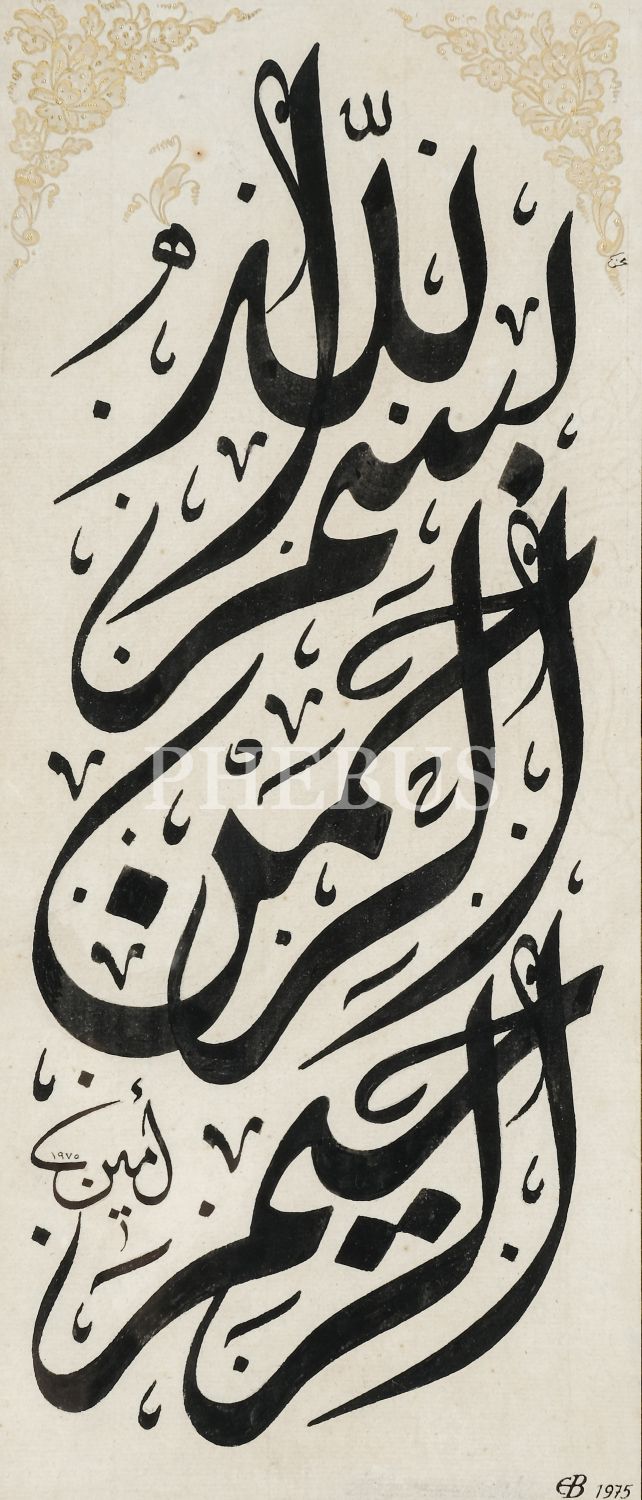 بسم الله
الرحمن
الرحيم
أمين
١٩٧٥
PHEBUS
EB 1975